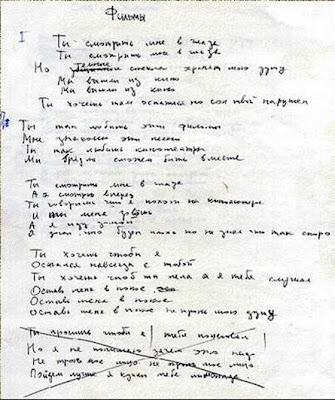 Фильмы
I
Ты смотришь мне в глаза
Ты смотришь мне в глаза
Но темные стекла хранят мою душу
Мы вышли из кино
Мы вышли из кино
Ты хочешь там остаться но сон твой нарушен
Ты так любишь эти фильмы
Мне знакомы эти песни
Ты так любишь кинотеатры
Мы вряд ли сможем быть вместе
Ты смотришь мне в глаза
А я смотрю вперед
Ты говоришь что я похож на киноактера
И ты меня зовешь
А я иду домой
я знал что будет плохо но не знал что так скоро
Ты хочешь чтоб я
Остался навсегда с тобой
Ты хочешь чтоб ты пела а я тебя слушал
Оставь меня в покое
Оставь меня в покое
Оставь меня в покое не тронь мою душу
Ты просишь чтоб я тебя поцеловал
Но я не понимаю зачем это надо
Не тронь мое лицо не тронь мое лицо
Пойдем я куплю тебе лимонада